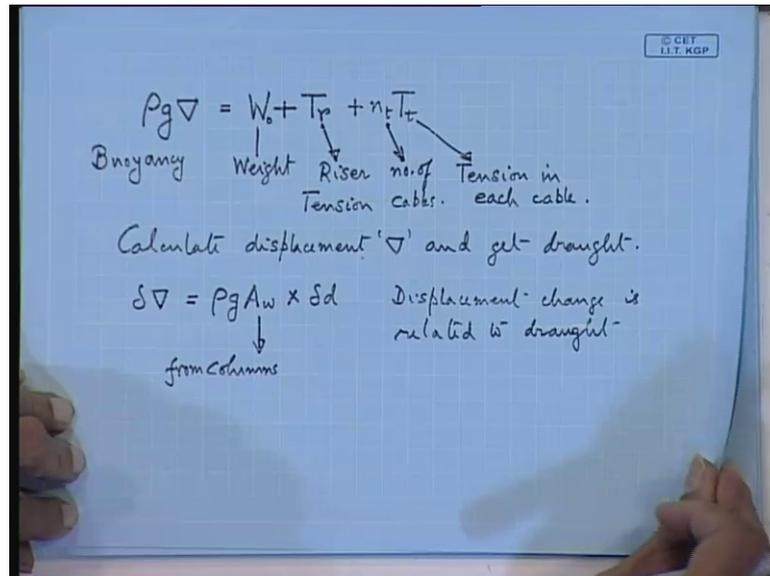 © CET
I.I.T. KGP
ρg∇ = W₀ + Tᵣ + nₜTₜ
Buoyancy Weight Riser no. of Tension in
Tension cables. each cable.
Calculate displacement '∇' and get draught.
δ∇ = ρgA_w × δd Displacement change is
related to draught
from columns